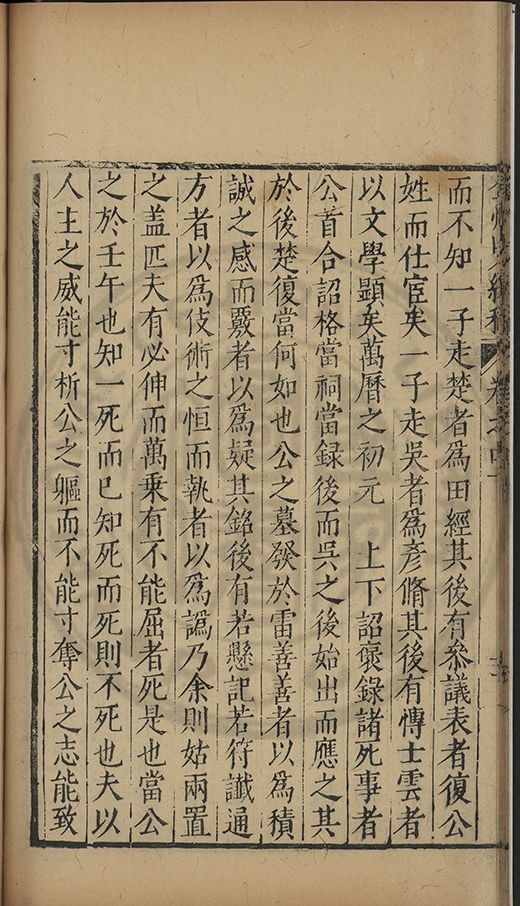 而不知一子走楚者爲田經其後有參議表者復公
姓而仕宦矣一子走吳者爲彦脩其後有博士雲者
以文學顯矣萬曆之初元　上下詔褒錄諸死事者
公首合詔格當祠當録後而吳之後始出而應之其
於後楚復當何如也公之墓發於雷善善者以爲積
誠之感而覈者以爲疑其銘後有若懸記若符讖通
方者以爲伎術之恒而執者以爲譌乃余則姑兩置
之盖匹夫有必伸而萬乗有不能屈者死是也當公
之於壬午也知一死而已知死而死則不死也夫以
人主之威能寸析公之軀而不能寸奪公之志能致